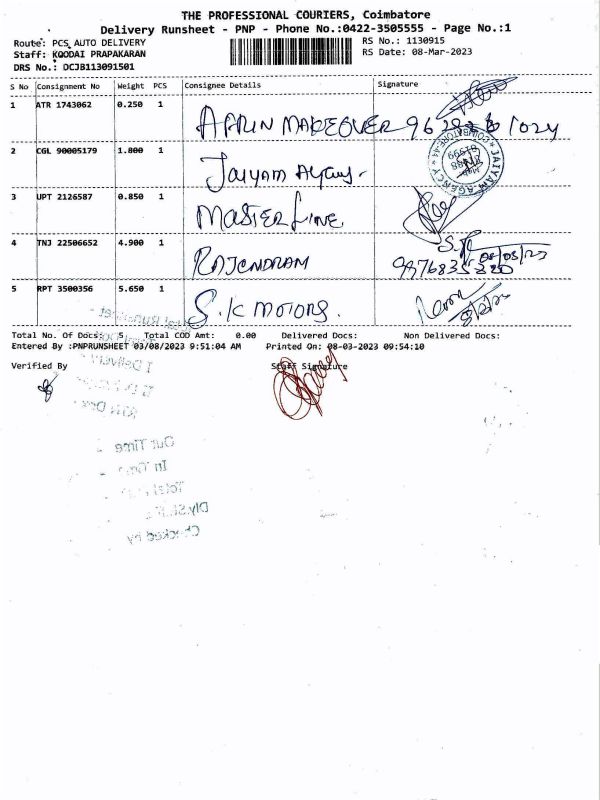 THE PROFESSIONAL COURIERS, Coimbatore
Delivery Runsheet - PNP - Phone No.:0422-3505555 - Page No.:1
Route: PCS AUTO DELIVERY
RS No.: 1130915
Staff: KOODAI PRAPAKARAN
RS Date: 08-Mar-2023
DRS No.: DCJB113091501
S No Consignment No Weight PCS Consignee Details Signature
1 ATR 1743062 0.250 1
2 CGL 90005179 1.800 1
JAIYAM AGENCY
COIMBATORE-44
3 UPT 2126587 0.850 1 MASTER LINE
4 TNJ 22506652 4.900 1 RAJENDRAM
08/03/23
5 RPT 3500356 5.650 1 S.K MOTORS.
Total No. Of Docs: 5 Total COD Amt: 0.00 Delivered Docs: Non Delivered Docs:
Entered By :PNPRUNSHEET 03/08/2023 9:51:04 AM Printed On: 08-03-2023 09:54:10
Verified By Staff Signature
Out Time
In Time
Checked by